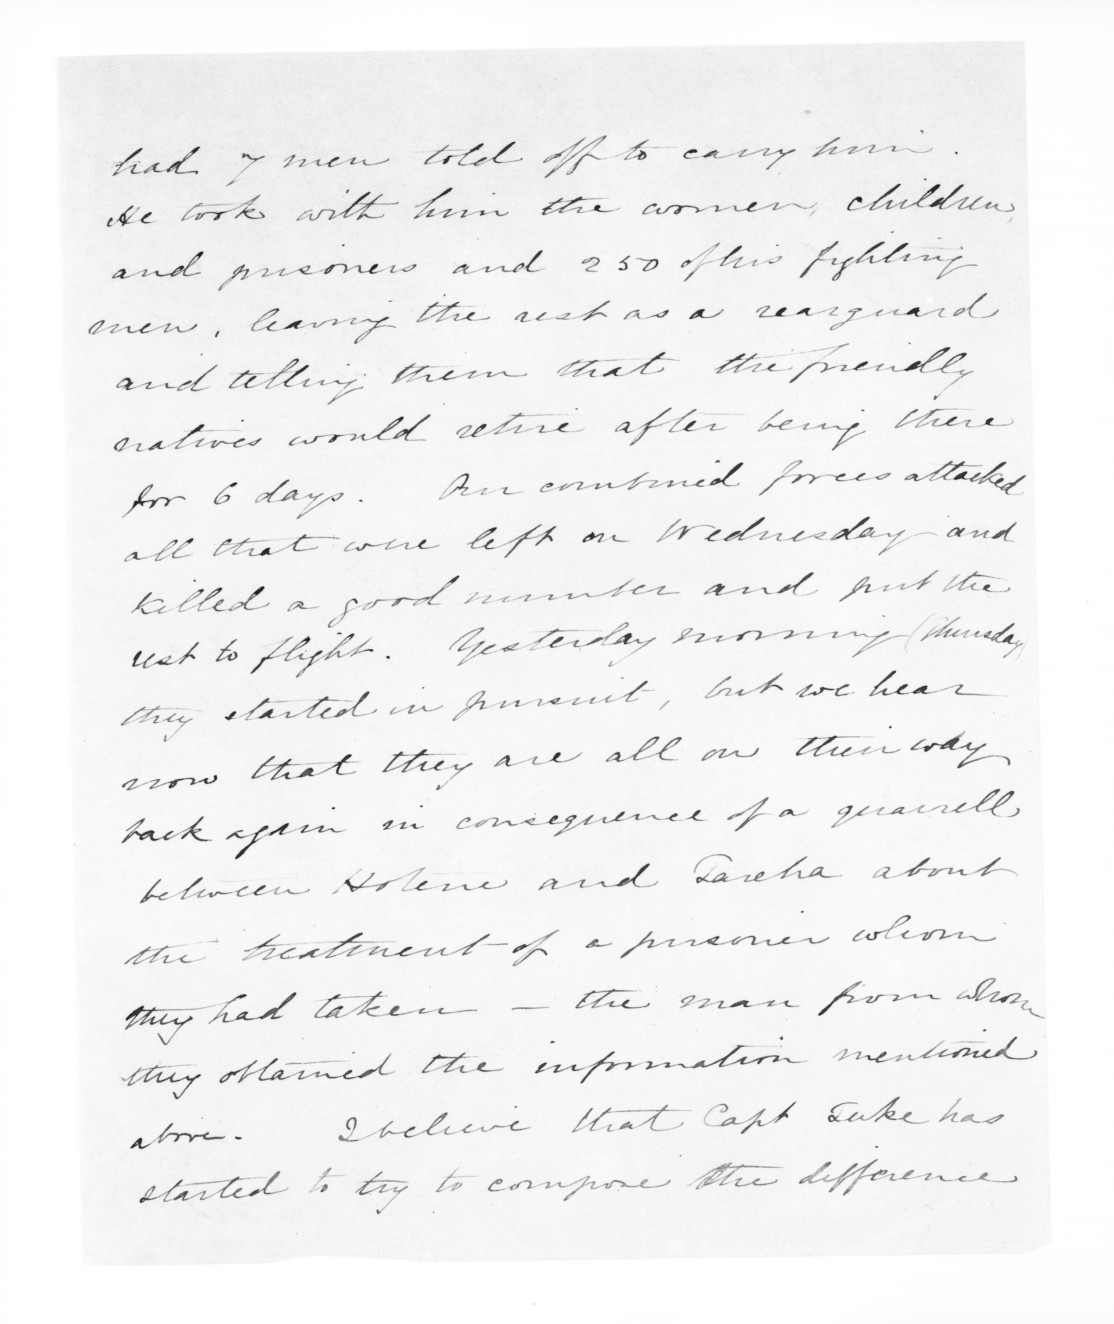 had 7 men told off to carry him.
He took with him the women, children,
and prisoners and 250 of his fighting
men, leaving the rest as a rearguard
and telling them that the friendly
natives would retire after being there
for 6 days. Our combined forces attacked
all that were left on Wednesday and
killed a good number and put the
rest to flight. Yesterday morning (Thursday)
they started in pursuit, but we hear
now that they are all on their way
back again in consequence of a quarrell
between Hotene and Tareha about
the treatment of a prisoner whom
they had taken — the man from whom
they obtained the information mentioned
above. I believe that Capt Tuke has
started to try to compose the difference